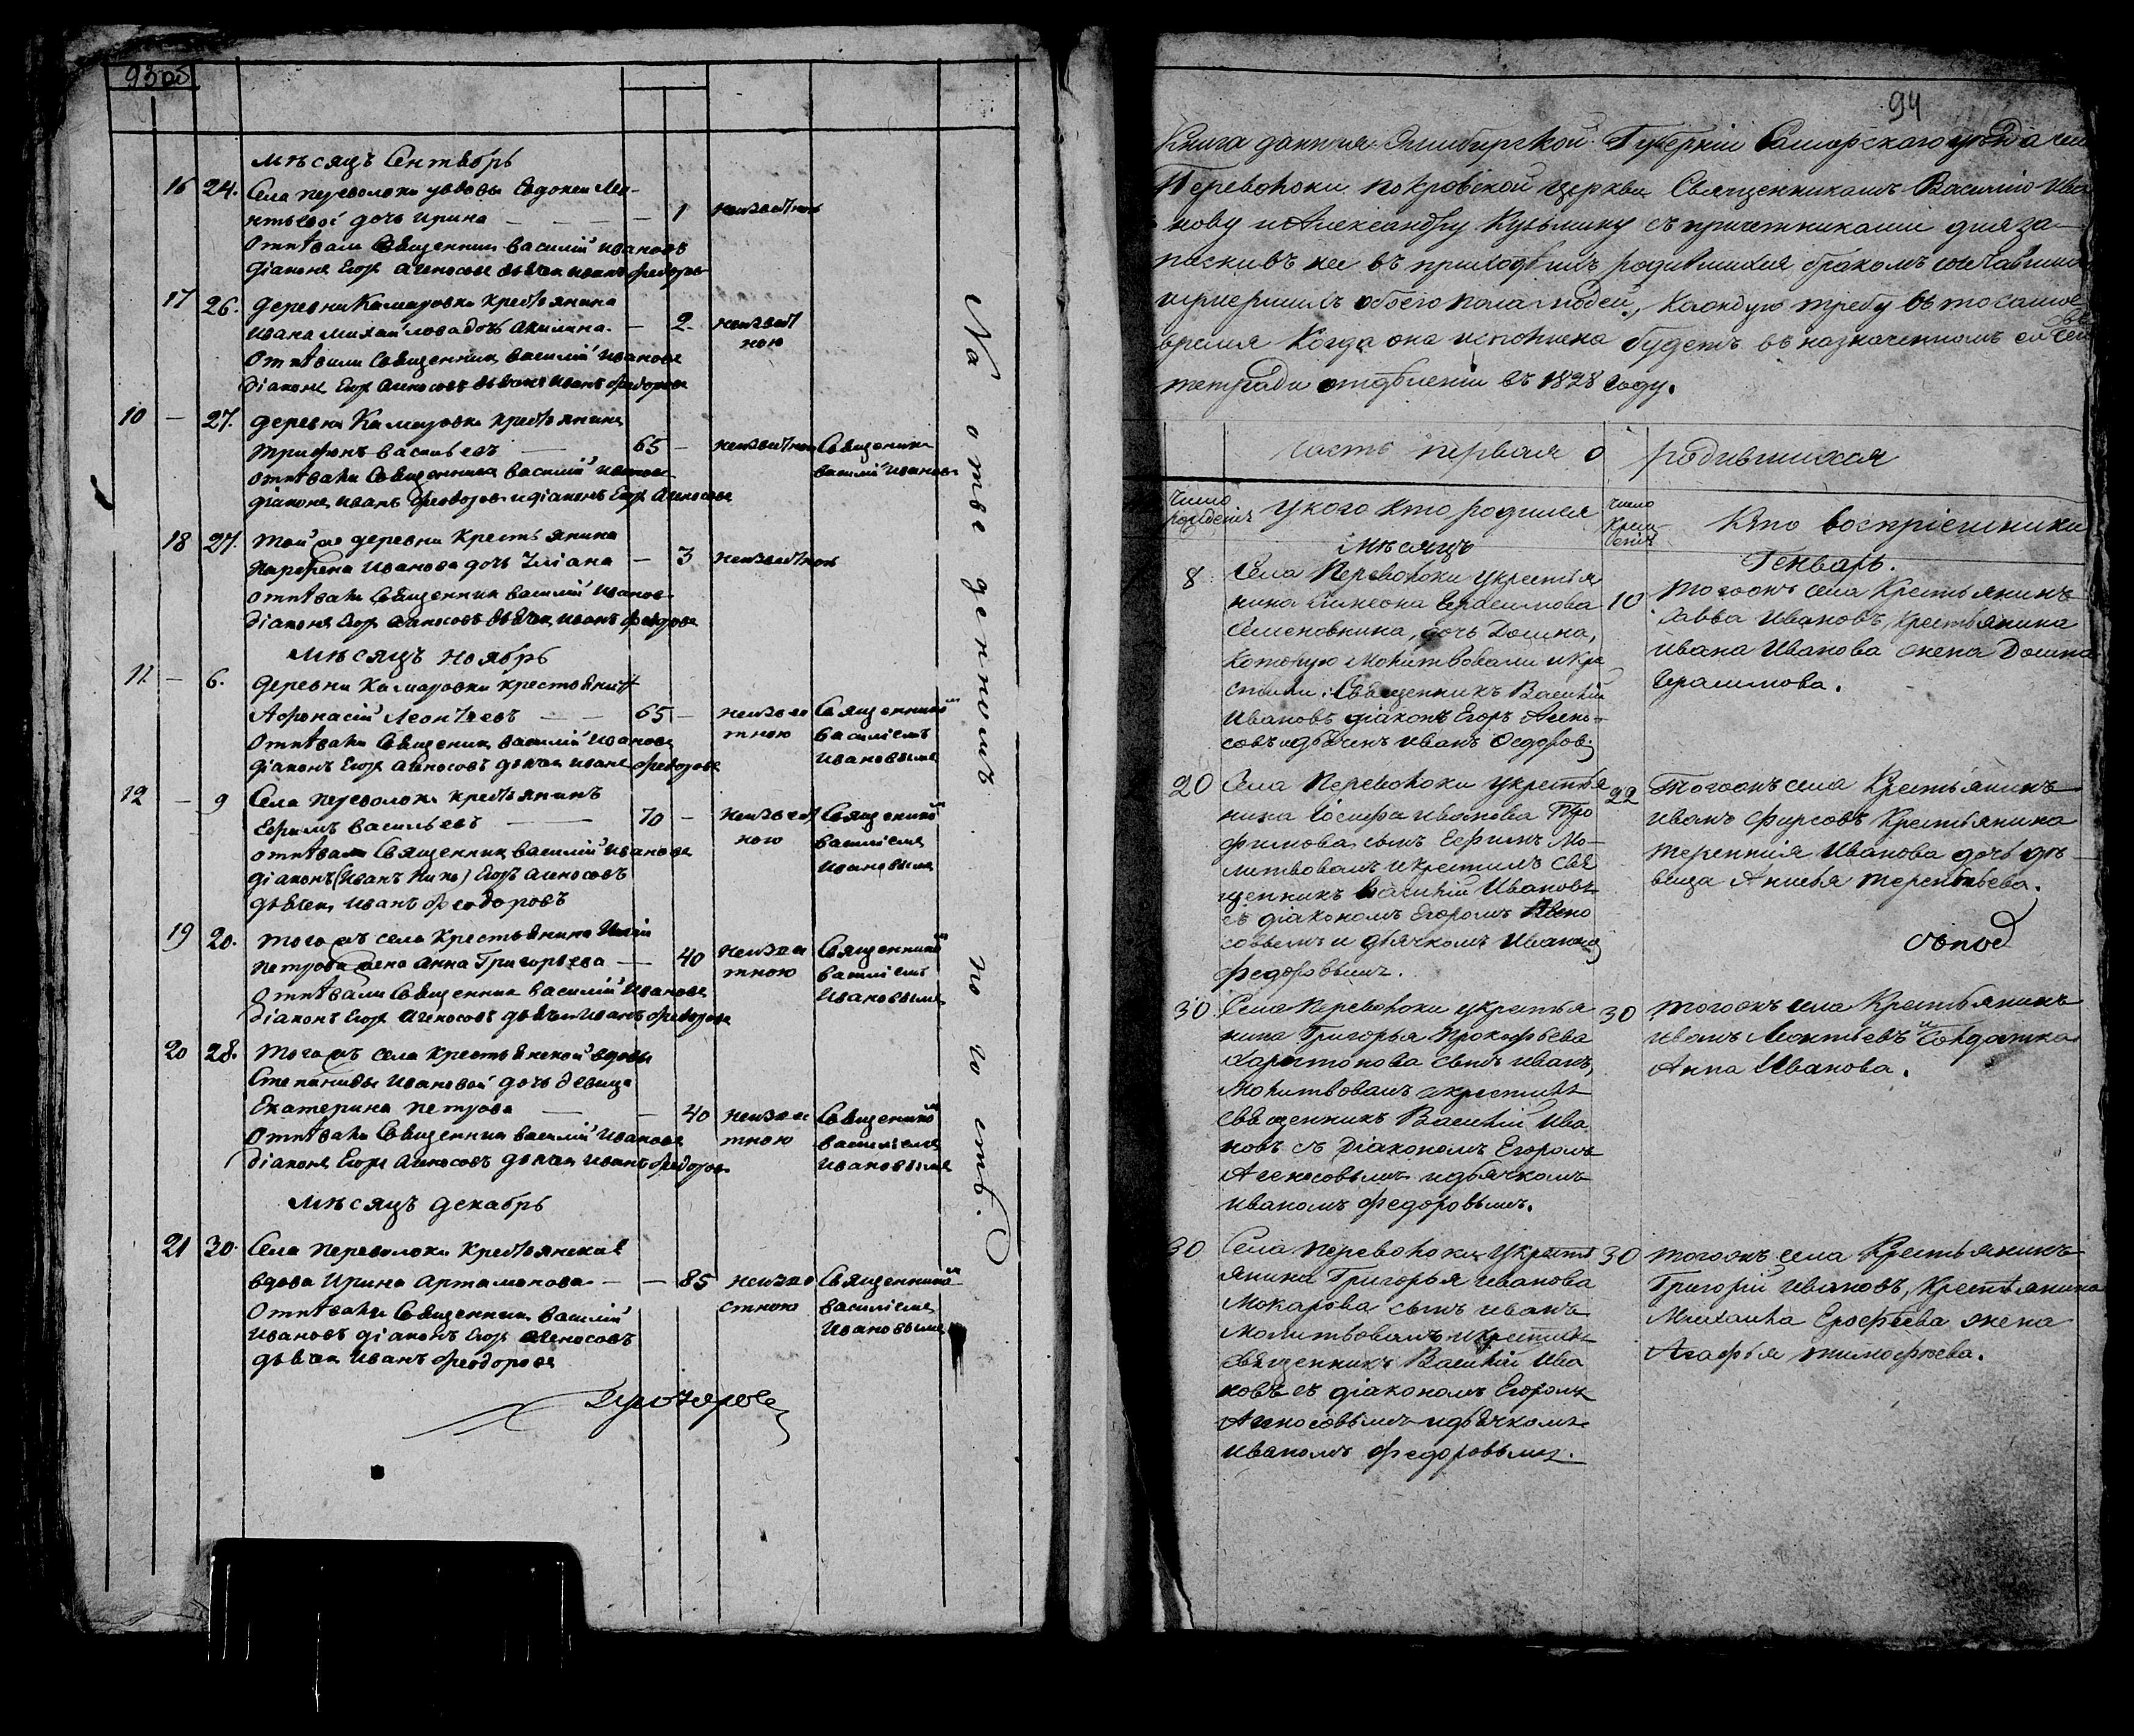 93 об
мѣсяцъ Сентябрь
16 24. Села переволоки увдовы Евдокеи Лео-
нтьевой дочь Ирина — 1 неизвестною
отпѣвали Священник василій ивановъ
діаконъ Егор Агеносовъ дьячек иванъ федоровъ
17 26. деревни Камаровки крестьянина
Ивана михайлова дочь Акилина — 2. неизвест
ною
отпѣвали Священник василій ивановъ
діаконъ Егор Агеносовъ дьячек иванъ федоровъ
10 — 27. деревни Камаровки крестьянинъ
Трифонъ васильевъ — 65 — неизвестною Священник
василій ивановъ
отпѣвали Священник василій ивановъ
діаконъ иванъ феодоров и діаконъ Егор Агеносовъ
18 27. той же деревни крестьянина
Парфена Иванова дочь Уліана — 3 неизвестною
отпѣвали Священник василій ивановъ
діаконъ Егор Агеносовъ дьячек иванъ федоровъ
мѣсяцъ ноябрь
11 — 6. деревни Камаровки крестьянинъ
Афонасій Леонтьевъ — 65 — неизвес Священником
тною василіемъ
ивановымъ
отпѣвали Священик василій ивановъ
діаконъ Егор Агеносовъ дьячек иванъ федоровъ
12 — 9 Села переволоки крестьянинъ
Ефимъ васильевъ — 70 — неизвест Священиком
ною василіемъ
ивановымъ
отпѣвали Священник василій ивановъ
діаконъ (Иванъ Нико) Егоръ агеносовъ
дьячек иванъ феодоровъ
19 20. того жъ села крестьянина
Петрова жена Анна Григорьева — 40 неизвес Священником
тною василіемъ
ивановымъ
отпѣвали Священник василій ивановъ
діаконъ Егор Агеносовъ дьячек иванъ федоровъ
20 28. того жъ села крестьянской вдовы
Степаниды Ивановой дочь девица
Екатерина петрова — 40 неизвес Священиком
тною василіемъ
ивановымъ
отпѣвали Священник василій ивановъ
діаконъ Егор Агеносовъ дьячек иванъ федоровъ
мѣсяцъ декабрь
21 30. Села переволоки крестьянская
вдова Ирина Артамонова — — 85 неизве Священником
стною василіемъ
ивановымъ
отпѣвали Священник василій
ивановъ діаконъ Егор Агеносовъ
дьячек иванъ феодоровъ
На отведенномъ по
94
Книга данная Симбирской Губерніи Самарскаго уѣзда села
Переволоки покровской церкви Священникамъ Василію Ива
нову и Александру Кузьмину съ причетниками для за
писки въ нее въ приходѣ ихъ родившихся бракомъ сочетавшихся
и умершихъ обоего пола людей, каждую требу въ то самое
время когда она исполнена будетъ въ назначенномъ ей
тетради отдѣленіи въ 1828 году.
часть первая о родившихся
Число рожденія у кого кто родился Число Крещенія Кто воспріемники
Мѣсяцъ Генварь.
8 Села Переволоки у крестья
нина Симеона Герасимова
Семеновнина, дочь Домна,
которую молитвовали и кре
стили: Священникъ Василій
Ивановъ діаконъ Егоръ Агено-
совъ и дьячекъ иванъ Федоровъ
10 того жъ села Крестьянинъ
Савва Ивановъ, крестьянина
ивана Иванова жена Домна
Герасимова.
20 Села Переволоки у крестья
нина Іосифа иванова Тро
фимова сынъ Ефимъ Мо-
литвовалъ и крестилъ Свя
щенникъ Василій Ивановъ
съ діакономъ Егоромъ Агено
совымъ и дьячкомъ Иваномъ
федоровымъ.
22 того жъ села Крестьянинъ
иванъ фирсовъ Крестьянина
терентія Иванова дочь дѣ
вица Анисья терентьева.
30. Села Переволоки у крестья
нина Григорья Прокофьева
Харитонова сынъ иванъ,
Молитвовалъ и крестилъ
священникъ Василій Ива
новъ съ Діакономъ Егоромъ
Агеносовымъ и дьячкомъ
иваномъ федоровымъ.
30 того жъ села Крестьянинъ
иванъ Леонтьевъ и Солдатка
Анна Иванова.
30 Села Переволоки у кресть
янина Григорья иванова
Макарова сынъ иванъ
молитвовалъ и крестилъ
священникъ Василій Ива
новъ съ діакономъ Егоромъ
Агеносовымъ и дьячкомъ
иваномъ федоровымъ.
30 того жъ села Крестьянинъ
Григорій ивановъ, Крестьянина
Михаила Ерофѣева жена
Агафья тимофѣева.